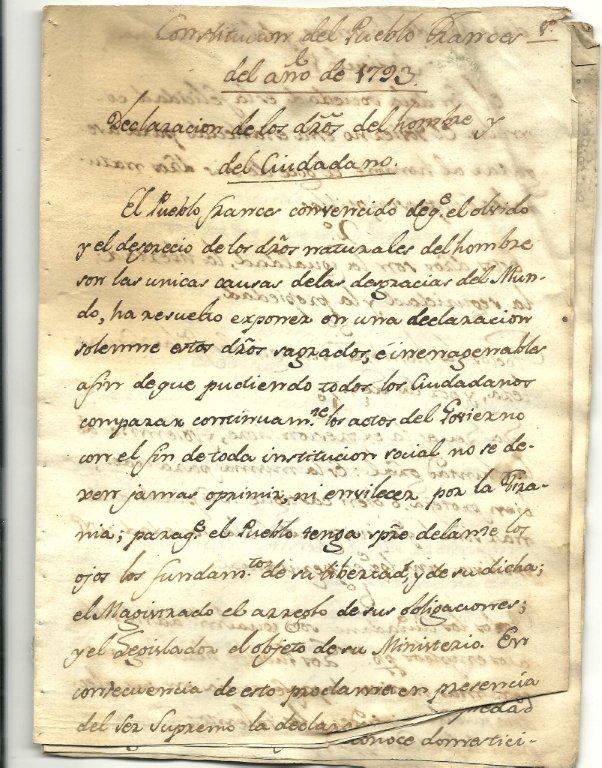 Constitucion del Pueblo Frances
del año de 1793.
Declaracion de los dr̃os del hombre y
del Ciudadano.
El Pueblo frances convencido de q.e el olvido
y el desprecio de los dr̃os naturales del hombre
son las unicas causas de las desgracias del Mun-
do, ha resuelto exponer en una declaracion
solemne estos dr̃os sagrados, é inenagenables
a fin de que pudiendo todos los Ciudadanos
comparar continuam.te los actos del Govierno
con el fin de toda institucion social no se de-
xen jamas oprimir, ni envilecer por la Tira-
nia; para q.e el Pueblo tenga sp̃re delante los
ojos los fundam.tos de su libertad, y de su dicha;
el Magistrado el arreglo de sus obligaciones;
y el Legislador el objeto de su Ministerio. En
consecuencia de esto proclama en presencia
del Ser Supremo la declar
onoce domestici-